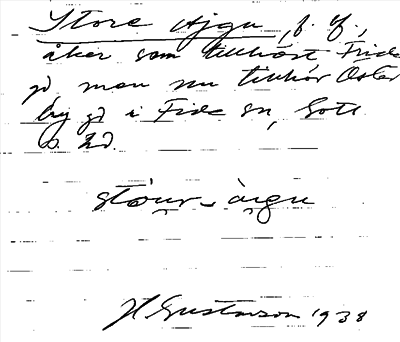 Store Ajgu, f. f.,
åker som tillhört Fride
gd men nu tillhör Öster
by gd i Fide sn, Gotl.
S. hd.
stóur-àigu
H Gustavson 1938